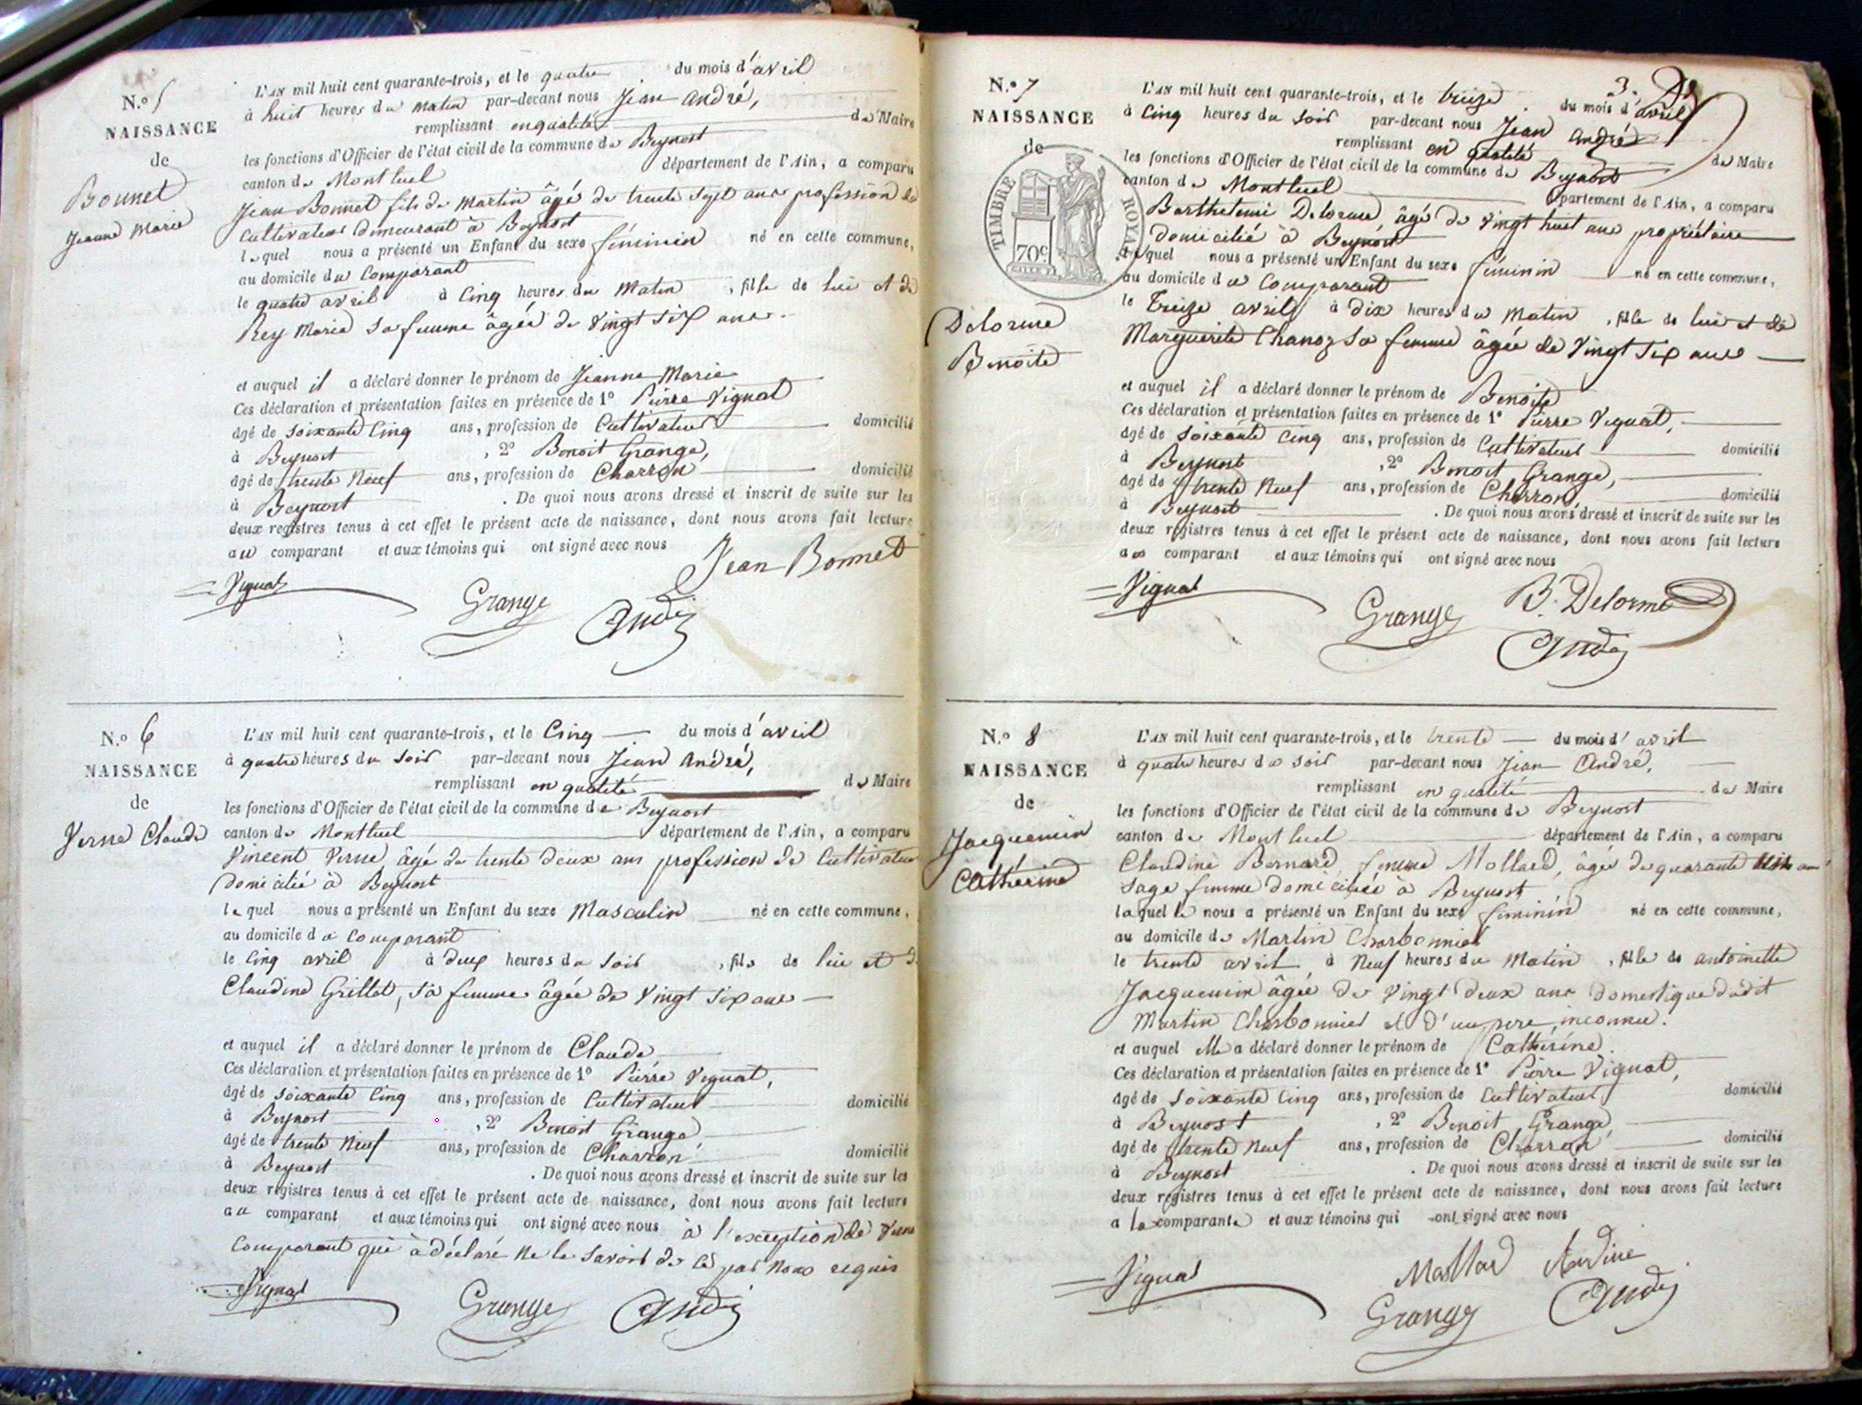 N.o 5
NAISSANCE
de
Bonnet
Jeanne Marie
L'AN mil huit cent quarante-trois, et le quatre du mois d'avril
à huit heures du matin par-devant nous Jean André,
remplissant en qualité de Maire
les fonctions d'Officier de l'état civil de la commune de Beynost
canton de Montluel département de l'Ain, a comparu
Jean Bonnet fils de Martin âgé de trente sept ans profession de
Cultivateur demeurant à Beynost
lequel nous a présenté un Enfant du sexe féminin né en cette commune,
au domicile du Comparant
le quatre avril à Cinq heures du Matin, fille de lui et de
Rey Marie sa femme âgée de vingt six ans.
et auquel il a déclaré donner le prénom de Jeanne Marie
Ces déclaration et présentation faites en présence de 1° Pierre Vignat
âgé de soixante Cinq ans, profession de Cultivateur domicilié
à Beynost, 2° Benoit Grange,
âgé de trente Neuf ans, profession de Charron domicilié
à Beynost. De quoi nous avons dressé et inscrit de suite sur les
deux registres tenus à cet effet le présent acte de naissance, dont nous avons fait lecture
au comparant et aux témoins qui ont signé avec nous
Jean Bonnet
Vignat Grange André
N.o 6
NAISSANCE
de
Verne Claude
L'AN mil huit cent quarante-trois, et le Cinq du mois d'avril
à quatre heures du soir par-devant nous Jean André,
remplissant en qualité de Maire
les fonctions d'Officier de l'état civil de la commune de Beynost
canton de Montluel département de l'Ain, a comparu
Vincent Verne, âgé de trente deux ans profession de Cultivateur
domicilié à Beynost
lequel nous a présenté un Enfant du sexe Masculin né en cette commune,
au domicile du Comparant
le Cinq avril à deux heures du soir, fils de lui et d
Claudine Grillet, sa femme âgée de vingt six ans
et auquel il a déclaré donner le prénom de Claude
Ces déclaration et présentation faites en présence de 1° Pierre Vignat,
âgé de soixante Cinq ans, profession de Cultivateur domicilié
à Beynost, 2° Benoit Grange
âgé de trente Neuf ans, profession de Charron domicilié
à Beynost. De quoi nous avons dressé et inscrit de suite sur les
deux registres tenus à cet effet le présent acte de naissance, dont nous avons fait lecture
au comparant et aux témoins qui ont signé avec nous à l'exception de Verne
Comparant qui à déclaré ne le savoir de ce par nous requis
Vignat Grange André
3.
N.o 7
NAISSANCE
de
TIMBRE ROYAL
70c
Delorme
Benoite
L'AN mil huit cent quarante-trois, et le treize du mois d'avril
à Cinq heures du soir par-devant nous Jean André
remplissant en qualité de Maire
les fonctions d'Officier de l'état civil de la commune de Beynost
canton de Montluel département de l'Ain, a comparu
Barthelemi Delorme, âgé de vingt huit ans propriétaire
domicilié à Beynost
lequel nous a présenté un Enfant du sexe féminin né en cette commune,
au domicile du Comparant
le treize avril à dix heures du Matin, fille de lui et de
Marguerite Chanoz sa femme âgée de vingt six ans
et auquel il a déclaré donner le prénom de Benoite
Ces déclaration et présentation faites en présence de 1° Pierre Vignat,
âgé de soixante Cinq ans, profession de Cultivateur domicilié
à Beynost, 2° Benoit Grange,
âgé de trente Neuf ans, profession de Charron domicilié
à Beynost. De quoi nous avons dressé et inscrit de suite sur les
deux registres tenus à cet effet le présent acte de naissance, dont nous avons fait lecture
au comparant et aux témoins qui ont signé avec nous
Vignat Grange B. Delorme
André
N.o 8
NAISSANCE
de
Jacquemin
Catherine
L'AN mil huit cent quarante-trois, et le trente du mois d'avril
à quatre heures du soir par-devant nous Jean André,
remplissant en qualité de Maire
les fonctions d'Officier de l'état civil de la commune de Beynost
canton de Montluel département de l'Ain, a comparu
Claudine Bernard, femme Mollard, âgée de quarante ans
sage femme domiciliée à Beynost
laquelle nous a présenté un Enfant du sexe féminin né en cette commune,
au domicile de Martin Charbonnier
le trente avril à Neuf heures du Matin, fille de antoinette
Jacquemin âgée de vingt deux ans domestique dudit
Martin Charbonnier et d'un père inconnu.
et auquel elle a déclaré donner le prénom de Catherine.
Ces déclaration et présentation faites en présence de 1° Pierre Vignat,
âgé de soixante Cinq ans, profession de Cultivateur domicilié
à Beynost, 2° Benoit Grange,
âgé de trente Neuf ans, profession de Charron domicilié
à Beynost. De quoi nous avons dressé et inscrit de suite sur les
deux registres tenus à cet effet le présent acte de naissance, dont nous avons fait lecture
a la comparante et aux témoins qui ont signé avec nous
Vignat Mollard
Grange André